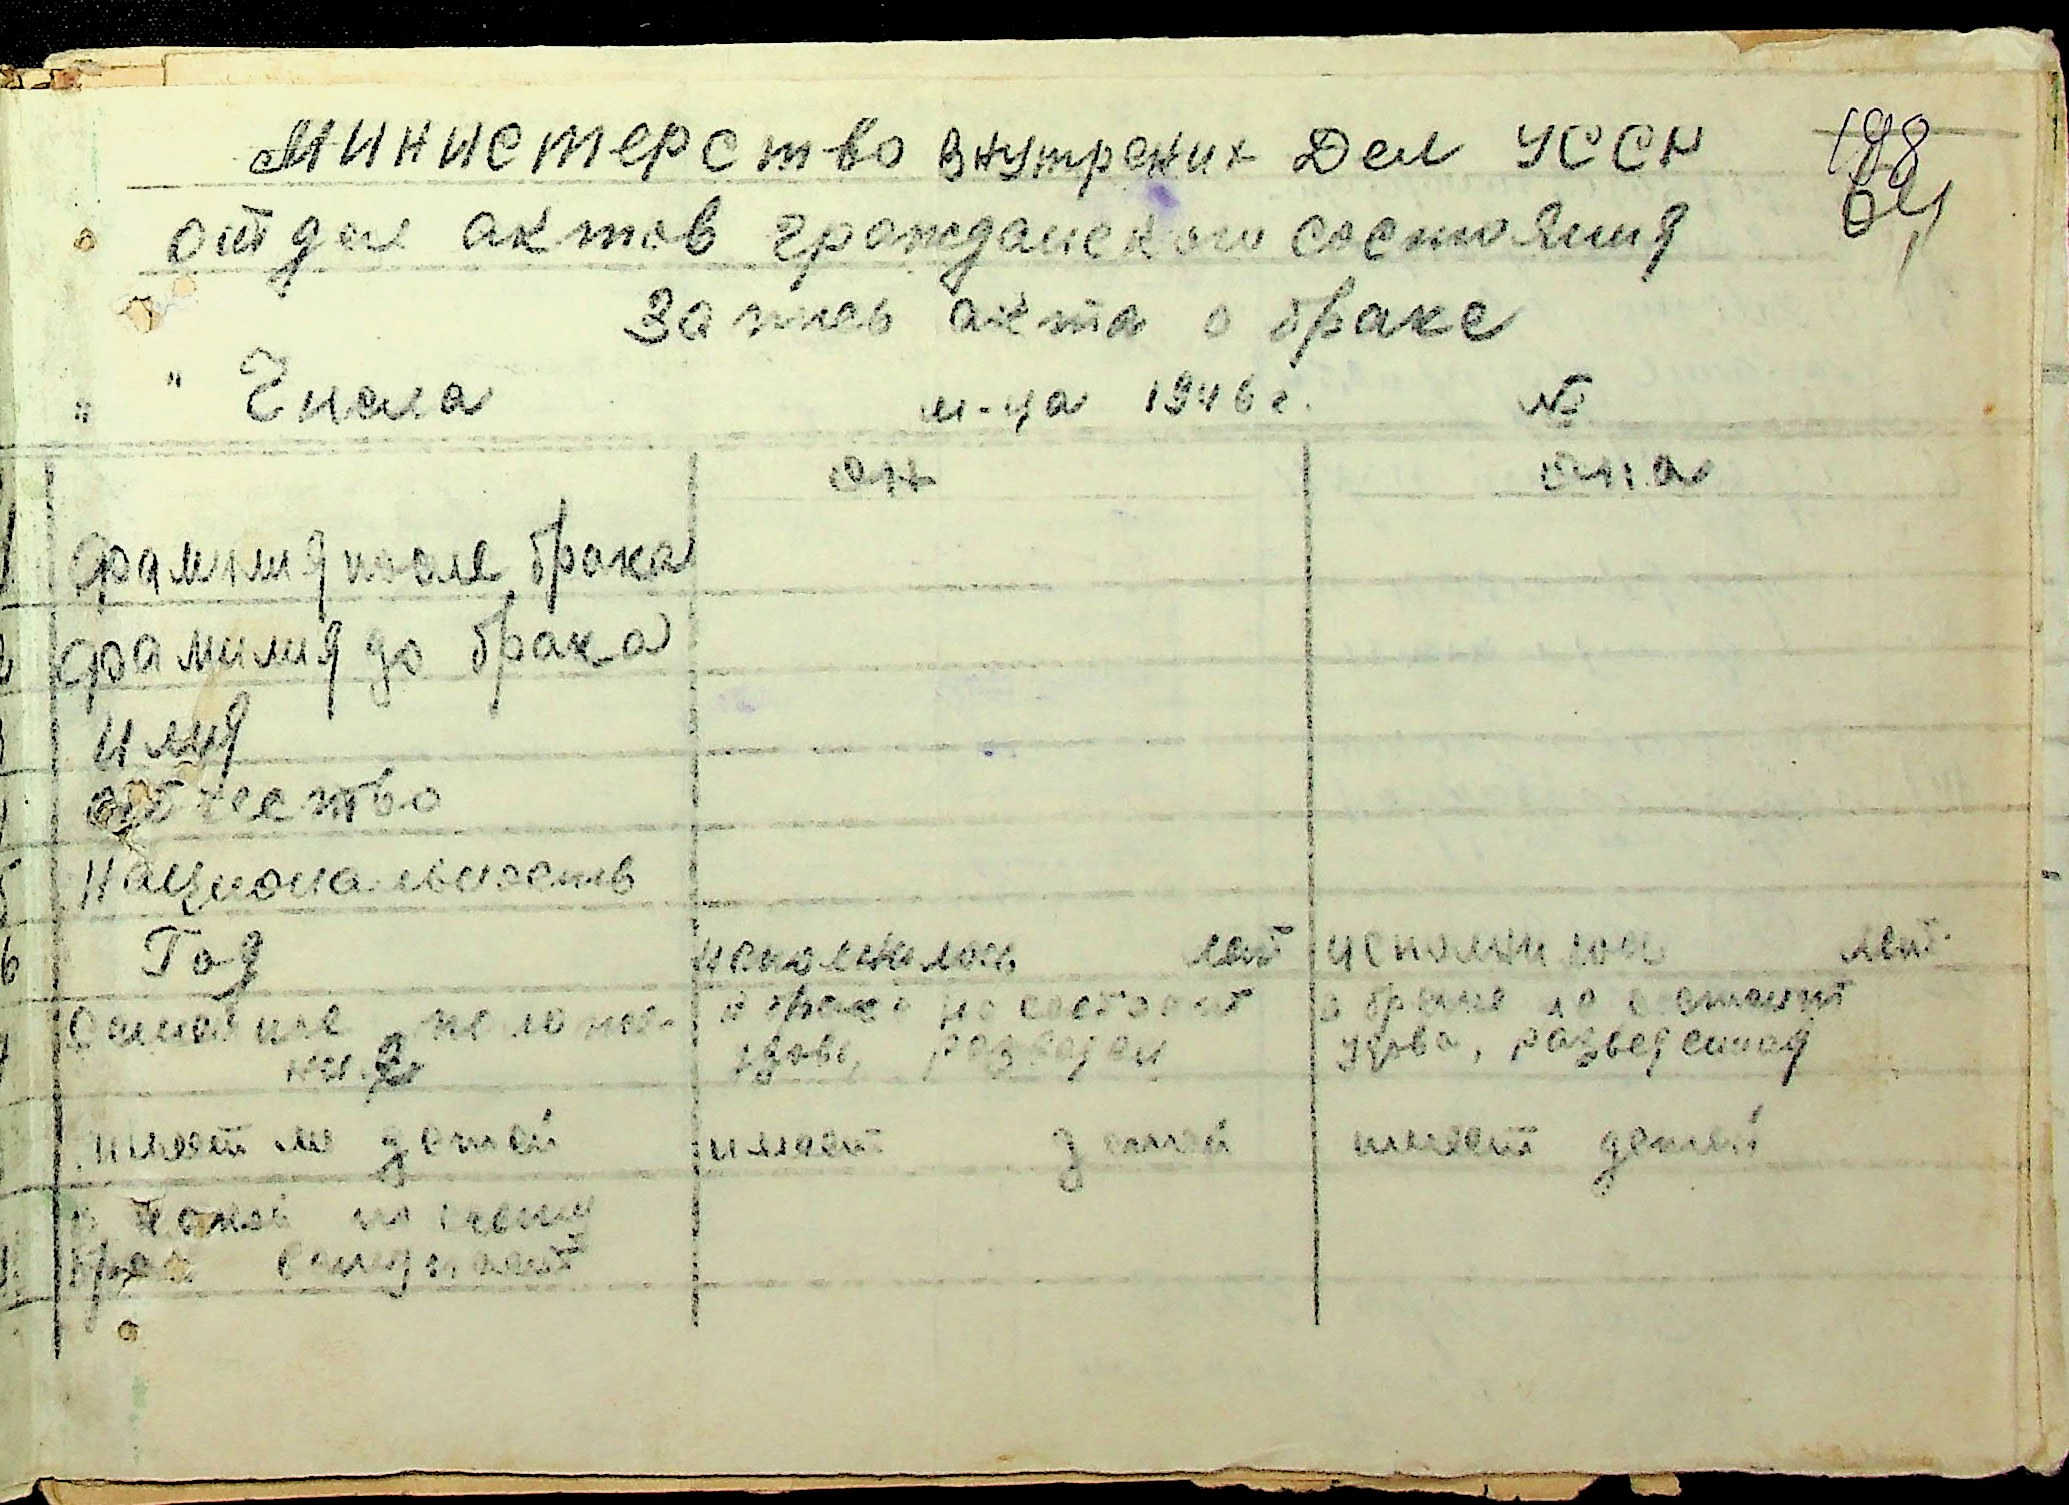 Министерство Внутрених Дел УССР
198
64
отдел актов гражданского состояния
Запись акта о браке
" " Числа м-ца 1946 г. №
он она
Фамилия после брака
Фамилия до брака
Имя
отчество
Национальность
5
6 Год исполнилось лет исполнилось лет
Семейное положе- в браке не состоит в браке не состоит
ние вдов, разведен удова, разведенная
имеет ли детей имеет детей имеет детей
в какой по счету
брак вступает